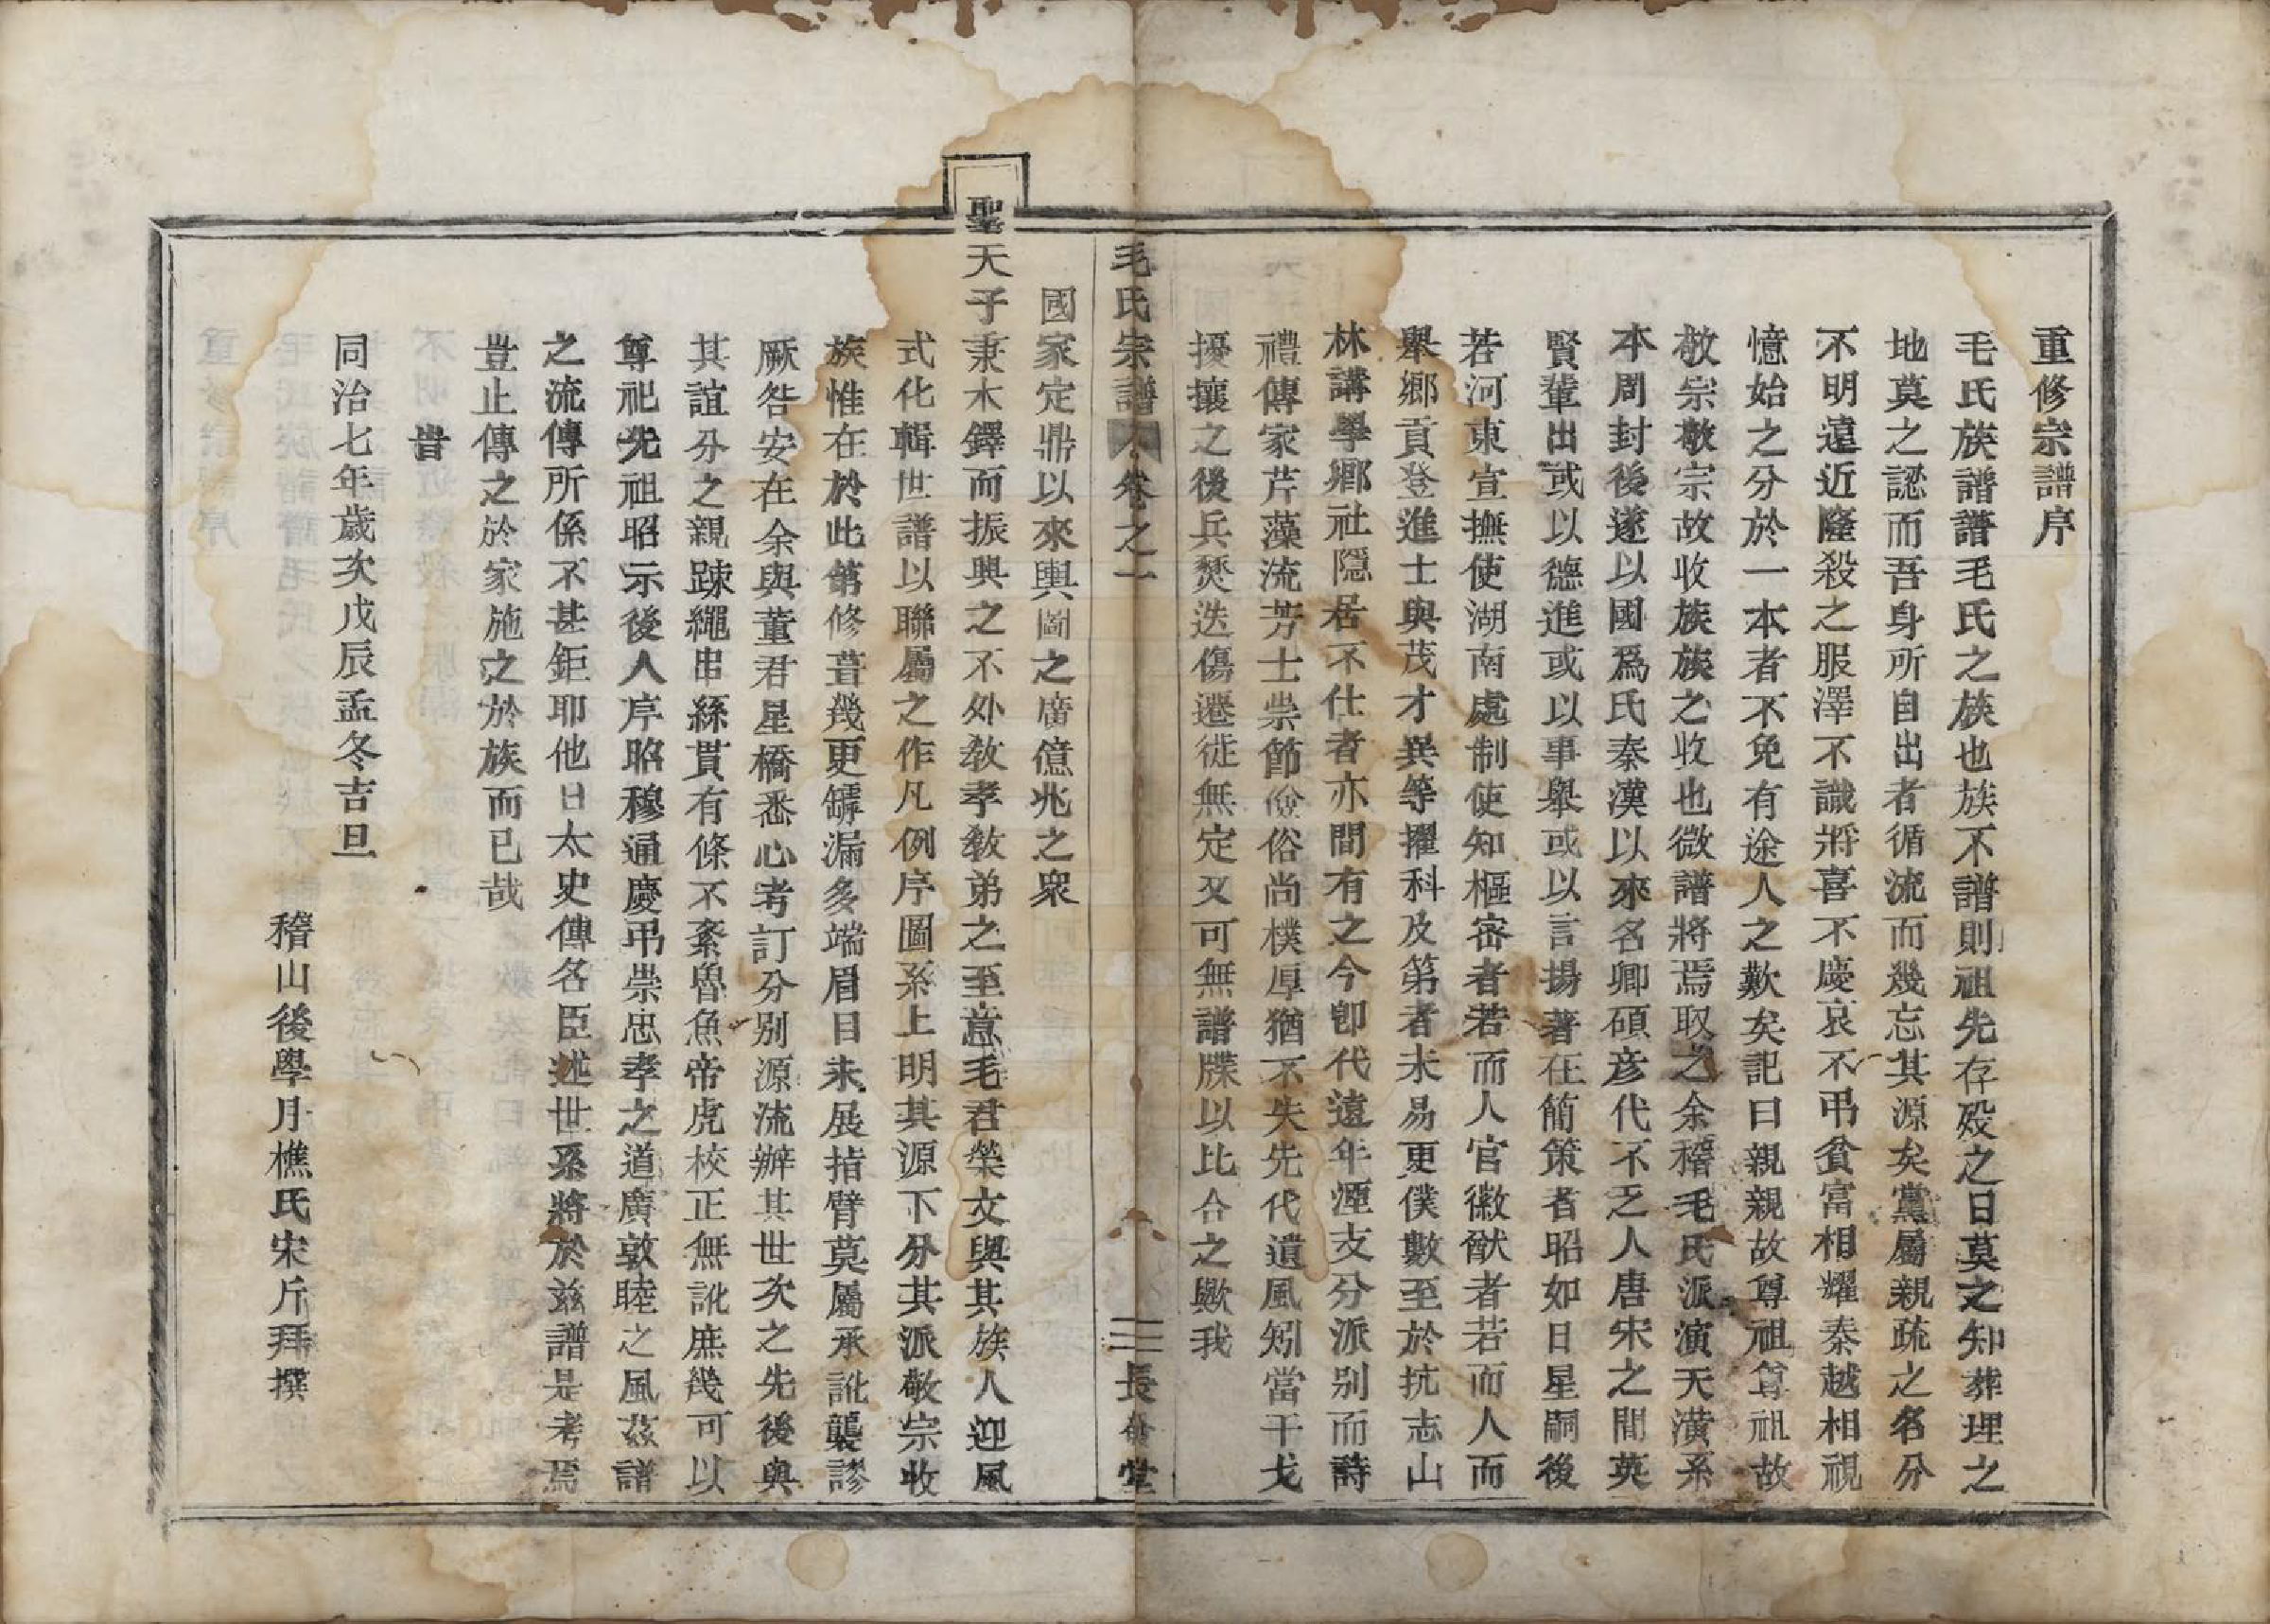 重修宗譜序
毛氏族譜譜毛氏之族也族不譜則祖先存殁之日莫之知葬埋之
地莫之認而吾身所自出者循流而幾忘其源矣黨屬親疏之名分
不明遠近隆殺之服澤不識將喜不慶哀不弔貧富相耀秦越相視
憶始之分於一本者不免有途人之歎矣記曰親親故尊祖尊祖故
敬宗敬宗故收族族之收也微譜將焉取之余稽毛氏派演天潢系
本周封後遂以國爲氏秦漢以來名卿碩彦代不乏人唐宋之間英
賢輩出或以德進或以事舉或以言揚著在簡策者昭如日星嗣後
若河東宣撫使湖南處制使知樞密者若而人官徽猷者若而人而
舉鄉貢登進士與茂才異等擢科及第者未易更僕數至於抗志山
林講學鄉社隱居不仕者亦間有之今卽代遠年湮支分派别而詩
禮傳家芹藻流芳士崇節儉俗尚樸厚猶不失先代遺風矧當干戈
擾攘之後兵燹迭傷遷徙無定又可無譜牒以比合之歟我
毛氏宗譜 卷之一 三 長發堂
國家定鼎以來輿圖之廣億兆之衆
聖天子秉木鐸而振興之不外敎孝敎弟之至意毛君榮文與其族人迎風
式化輯世譜以聯屬之作凡例序圖系上明其源下分其派敬宗收
族惟在於此第修葺幾更罅漏多端眉目未展指臂莫屬承訛襲謬
厥咎安在余與董君星橋悉心考訂分别源流辦其世次之先後與
其誼分之親踈繩串絲貫有條不紊魯魚帝虎校正無訛庶幾可以
尊祀先祖昭示後人序昭穆通慶弔崇忠孝之道廣敦睦之風茲譜
之流傳所係不甚鉅耶他日太史傳名臣述世系將於茲譜是考焉
豈止傳之於家施之於族而已哉
旹
同治七年歲次戊辰孟冬吉旦
稽山後學月樵氏宋斤拜撰